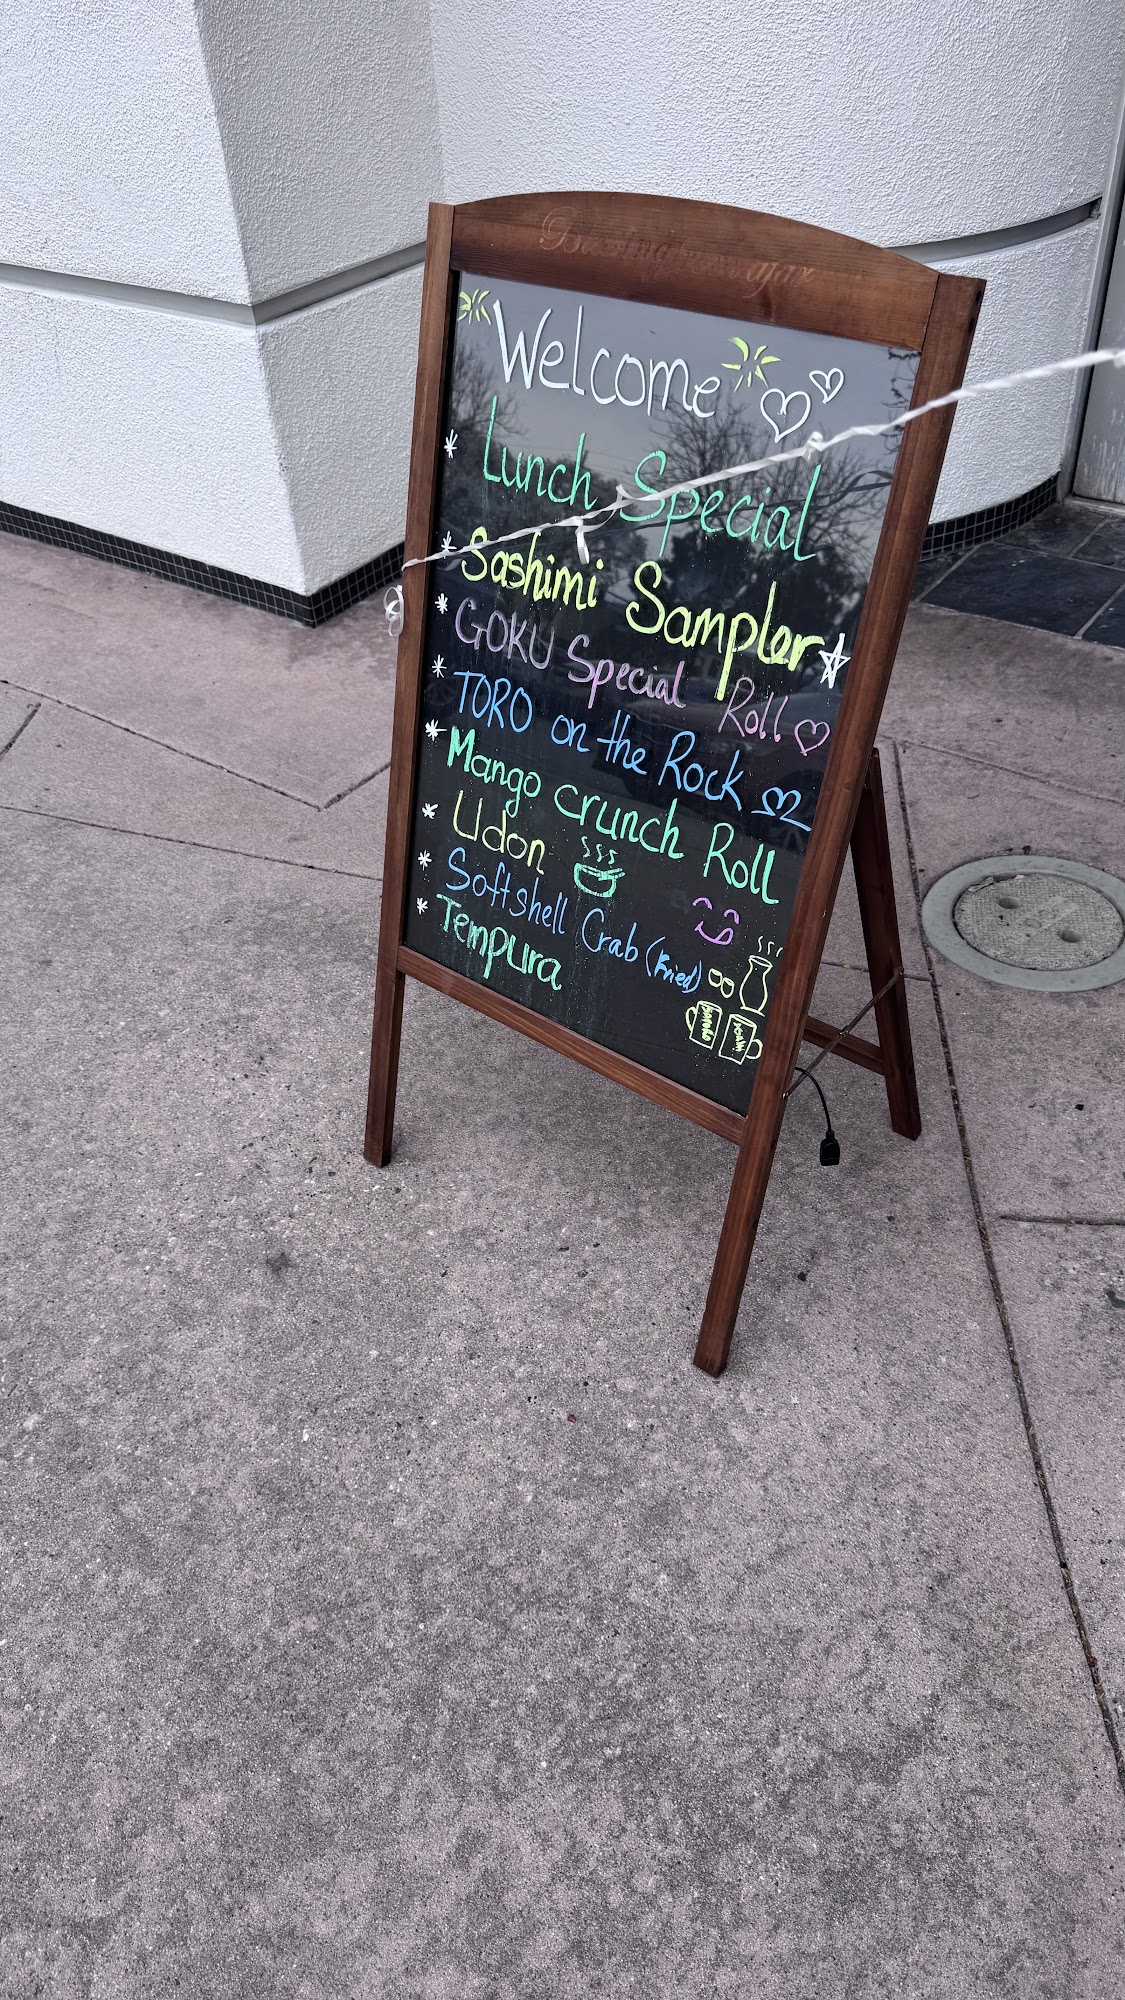 Welcome
* Lunch Special
* Sashimi Sampler
* GOKU Special Roll
* TORO on the Rock
* Mango crunch Roll
* Udon
* Softshell Crab (Fried)
* Tempura